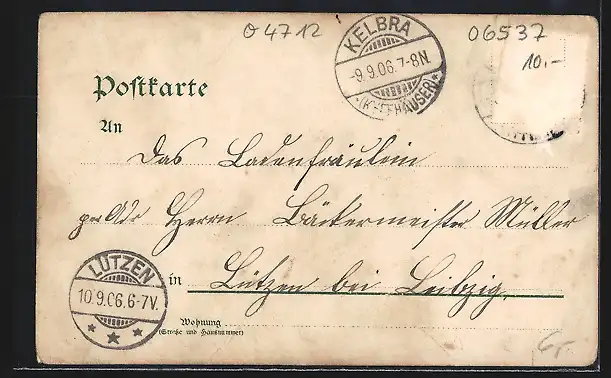 04712
06537
10.-
KELBRA
-9.9.06.7-8N.
*(KYFFHÄUSER)*
Postkarte
An
Das Ladenfräulein
per Adr Herrn Bäckermeister Müller
in Lützen bei Leibzig.
LÜTZEN
10.9.06.6-7V.
Wohnung
(Straße und Hausnummer)